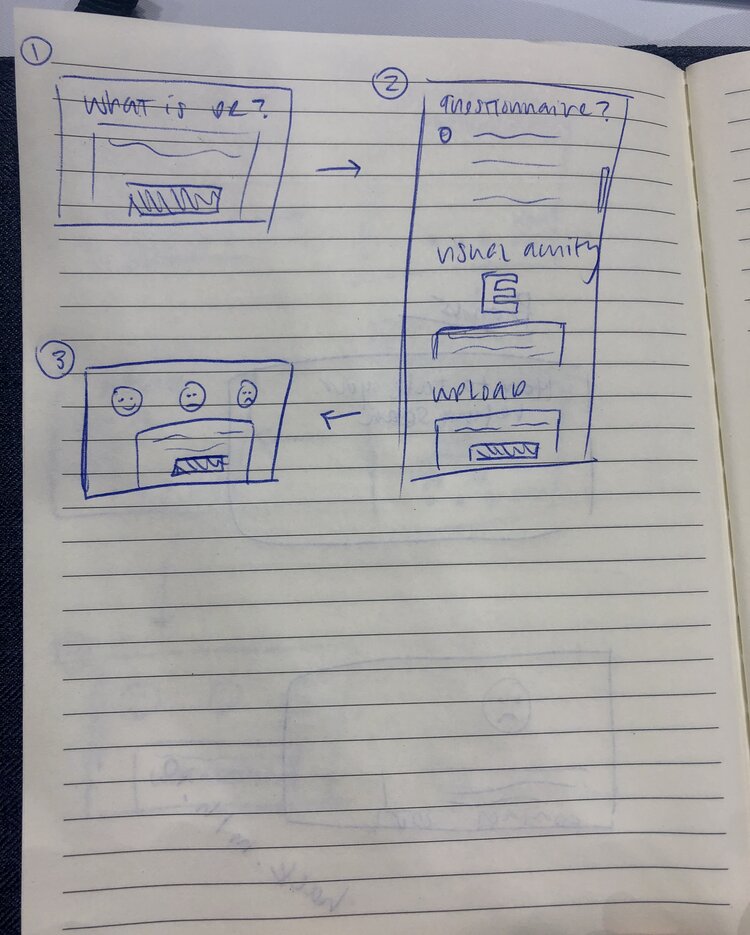 1
What is DR?
2
Questionnaire?
visual acuity
E
3
upload